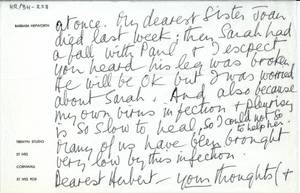 HR/BH-228
BARBARA HEPWORTH
at once. My dearest Sister Joan
died last week; then Sarah had
a fall with Paul & I expect
you heard his leg was broken
He will be OK but I was worried
about Sarah. And also because
my own virus infection & pleurisy
is so slow to heal, so I could not go
to help her.
Many of us have been brought
very low by this infection.
Dearest Herbert – your thoughts (+
TREWYN STUDIO
ST IVES
CORNWALL
ST IVES